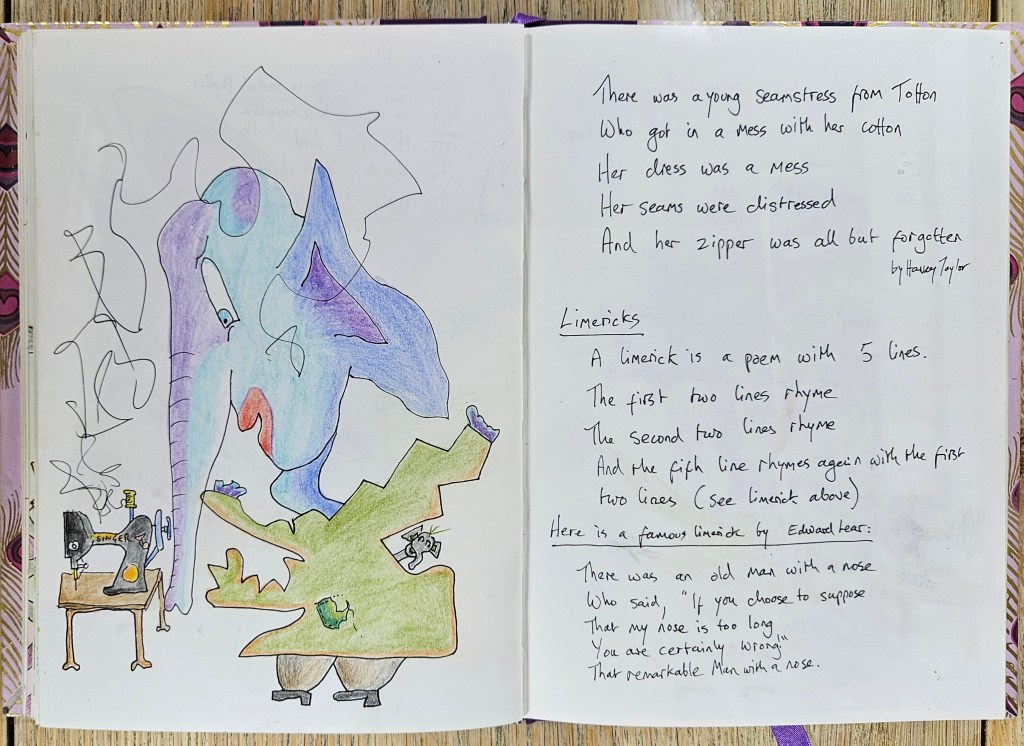 SINGER
There was a young seamstress from Totton
Who got in a mess with her cotton
Her dress was a mess
Her seams were distressed
And her zipper was all but forgotten
by Harvey Taylor
Limericks
A limerick is a poem with 5 lines.
The first two lines rhyme
The second two lines rhyme
And the fifth line rhymes again with the first
two lines (see limerick above)
Here is a famous limerick by Edward Lear:
There was an old man with a nose
Who said, "If you choose to suppose
That my nose is too long
You are certainly wrong!"
That remarkable Man with a nose.